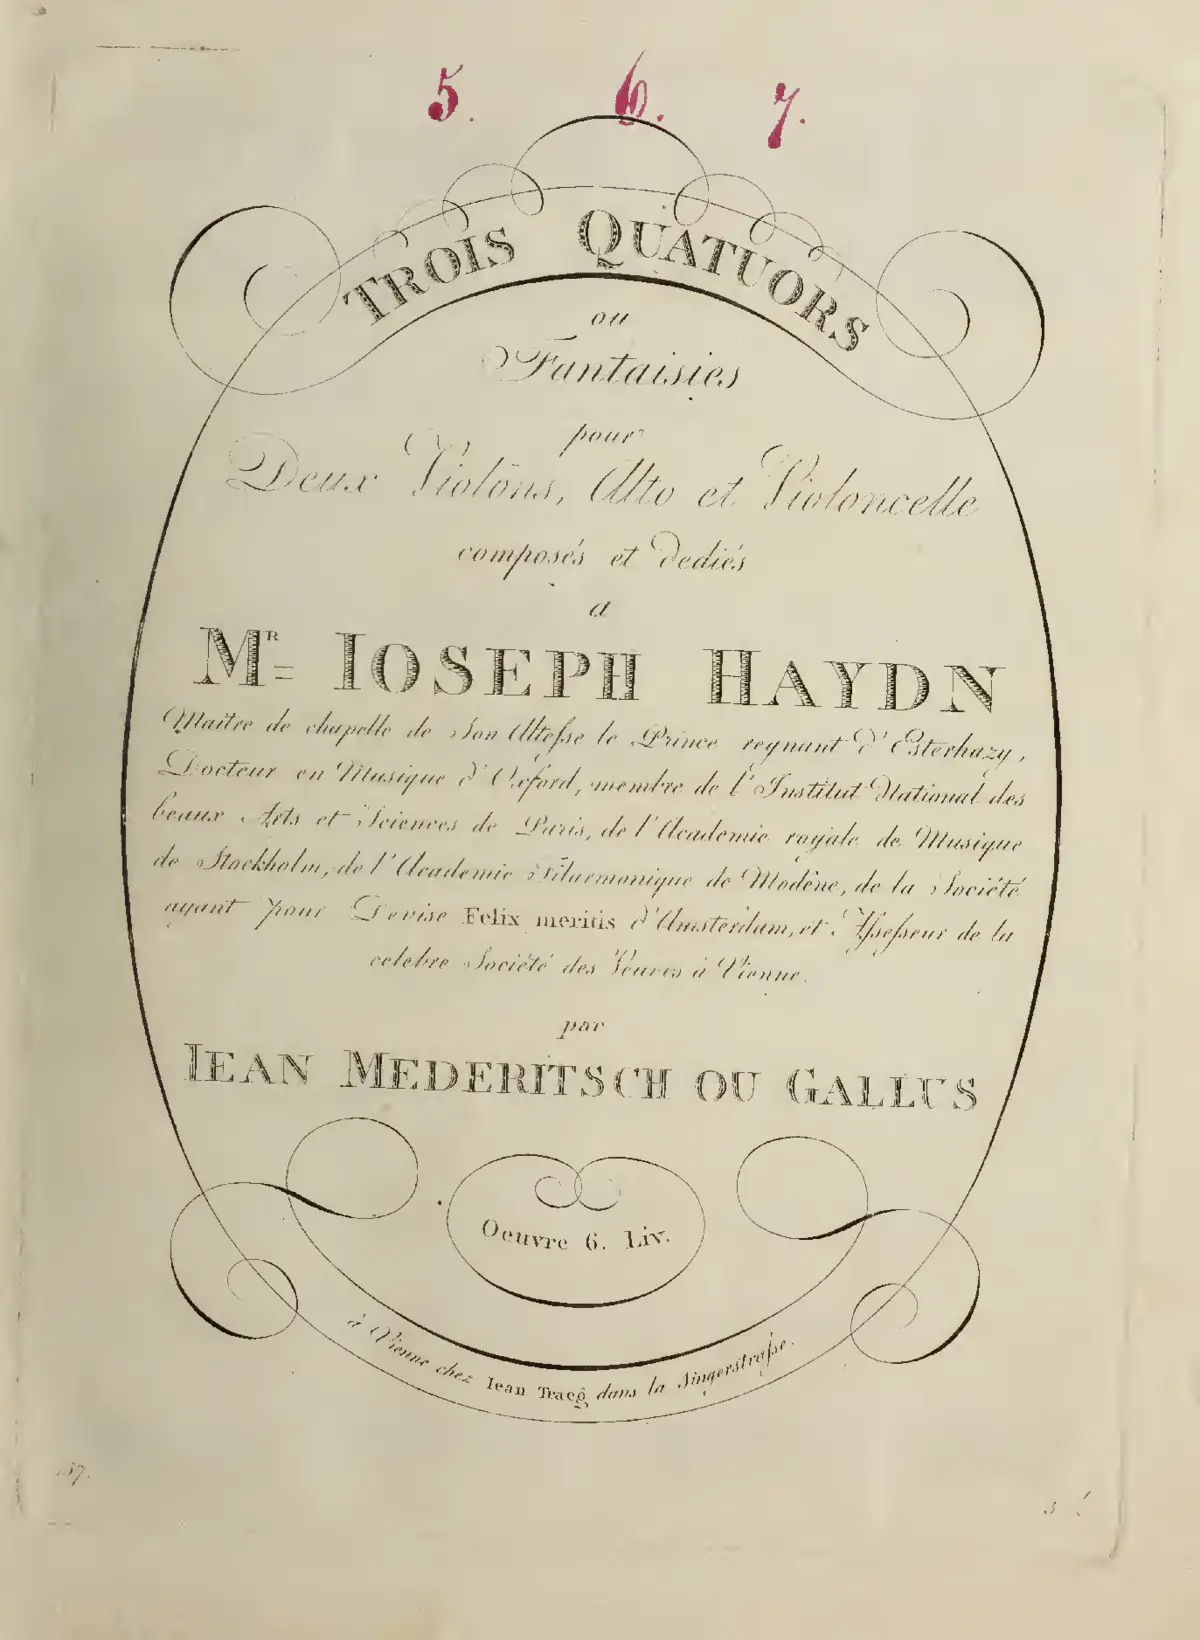 5. 6. 7.
TROIS QUATUORS
ou
Fantaisies
pour
Deux Violons, Alto et Violoncelle
composés et dediés
a
MR= IOSEPH HAYDN
Maitre de chapelle de Son Altesse le Prince regnant d'Esterhazy,
Docteur en Musique d'Oxford, membre de l'Institut National des
beaux Arts et Sciences de Paris, de l'Academie royale de Musique
de Stockholm, de l'Academie Filarmonique de Modêne, de la Société
ayant pour Devise Felix meritis d'Amsterdam, et Assesseur de la
celebre Société des Veuves à Vienne.
par
IEAN MEDERITSCH OU GALLUS
Oeuvre 6. Liv.
à Vienne chez Iean Traeg dans la Singerstrasse.